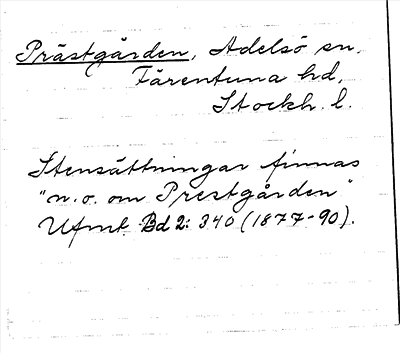 Prästgården, Adelsö sn,
Färentuna hd,
Stockh. l.
Stensättningar finnas
"n.o. om Prestgården"
Ufmt. Bd 2: 340 (1877-90).